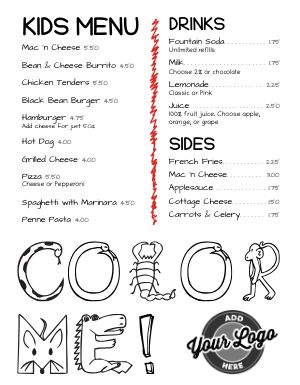 KIDS MENU
Mac 'n Cheese 5.50
Bean & Cheese Burrito 4.50
Chicken Tenders 5.50
Black Bean Burger 4.50
Hamburger 4.75
Add cheese for just 50¢
Hot Dog 4.00
Grilled Cheese 4.00
Pizza 5.50
Cheese or Pepperoni
Spaghetti with Marinara 4.50
Penne Pasta 4.00
DRINKS
Fountain Soda 1.75
Unlimited refills
Milk 1.75
Choose 2% or chocolate
Lemonade 2.25
Classic or Pink
Juice 2.50
100% fruit juice. Choose apple,
orange, or grape
SIDES
French Fries 2.25
Mac 'n Cheese 3.00
Applesauce 1.75
Cottage Cheese 1.50
Carrots & Celery 1.75
COLOR
ME!
ADD
Your Logo
HERE